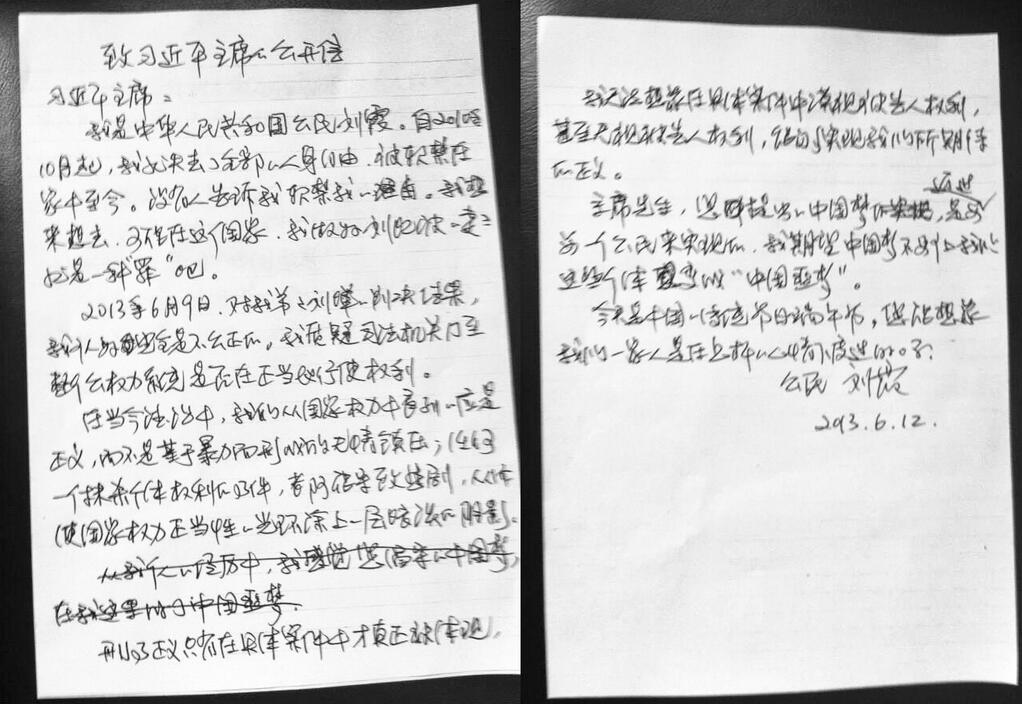 致习近平主席的公开信
习近平主席：
我是中华人民共和国公民刘霞。自2010年
10月起，我失去了全部的人身自由，被软禁在
家中至今。没有人告诉我软禁我的理由。我想
来想去，可能在这个国家，我做为刘晓波的妻子
就是一种“罪”吧。
2013年6月9日，对我弟弟刘晖的判决结果，
我个人认为完全是不公正的。我质疑司法机关乃至
整个公权力系统是否在正当地行使权利。
在当今法治中，我们从国家权力中看到的应是
正义，而不是基于暴力而形成的无情镇压；任何
一个抹杀个体权利的案件，都可能导致悲剧，从而
使国家权力正当性的光环涂上一层暗淡的阴影。
从我个人的经历中，我感觉您倡寻的中国梦，
在我这里成了中国噩梦。
再则正义只有在具体案件中才真正被体现，
我无法想象在具体案件中漠视被告人权利，
甚至无视被告人权利，能够实现我们所期待
的正义。
主席先生，您所提出的中国梦 通过
每一个公民来实现的，我期望中国梦不别让我们
这些个体变成“中国噩梦”。
今天是中国的传统节日端午节，您能想象
我们一家人是在怎样的心情下度过的吗？
公民 刘霞
2013.6.12.